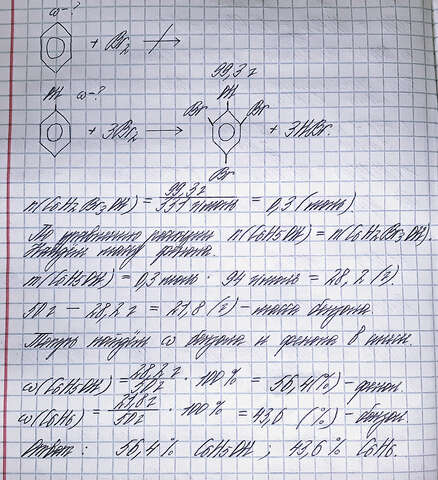 ω-?
+ Br₂
99,3 г
OH ω-? OH
Br Br
+ 3Br₂ + 3HBr.
Br
n(C₆H₂Br₃OH) = 99,3 г / 331 г/моль = 0,3 (моль).
По уравнению реакции n(C₆H₅OH) = n(C₆H₂Br₃OH).
Найдём массу фенола
m(C₆H₅OH) = 0,3 моль · 94 г/моль = 28,2 (г).
50 г – 28,2 г = 21,8 (г) – масса бензола
Теперь найдём ω бензола и фенола в смеси.
ω(C₆H₅OH) = 28,2 г / 50 г · 100 % = 56,4(%) – фенол.
ω(C₆H₆) = 21,8 г / 50 г · 100 % = 43,6 (%) – бензол.
Ответ: 56,4 % C₆H₅OH ; 43,6 % C₆H₆.